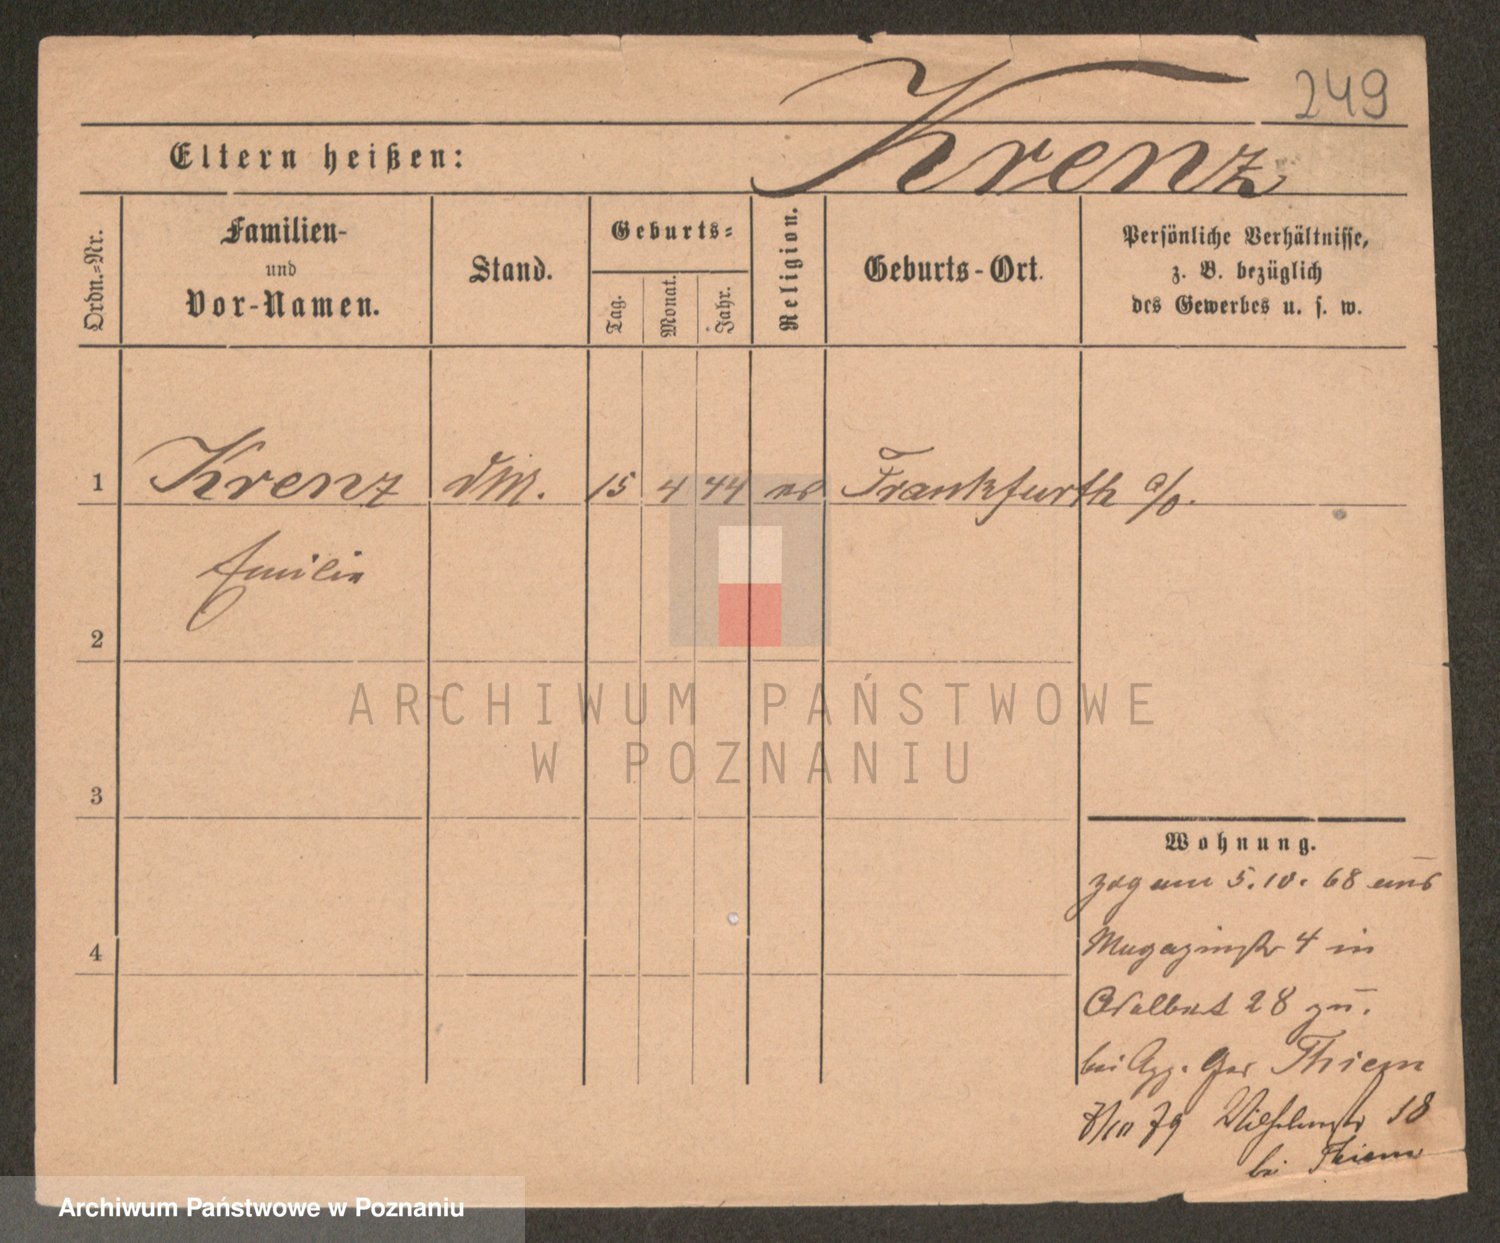 249
Krenz
Eltern heißen:
Ordn.=Nr.
Familien-
und
Vor-Namen.
Stand.
Geburts=
Tag.
Monat.
Jahr.
Religion.
Geburts-Ort.
Persönliche Verhältnisse,
z. B. bezüglich
des Gewerbes u. s. w.
1
Krenz
15
4
44
Frankfurth a/o.
Emilie
2
3
4
Wohnung.
zog am 5.10. 68 aus
Magazinstr 4 in
Adalbert 28 zu.
bei App. Ger Thiem
79 Wilhelmstr 18
bei Thiem
ARCHIWUM PAŃSTWOWE
W POZNANIU
Archiwum Państwowe w Poznaniu